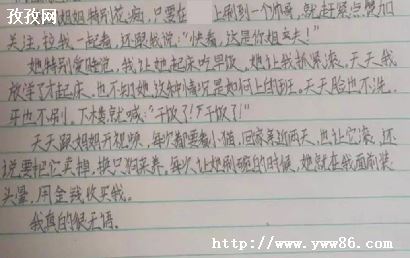 孜孜网
姐姐特别花痴,只要在 上刷到一个帅哥,就赶紧点赞加
关注,拉我一起看,还跟我说:“快看,这是你姐夫!”
她特别爱睡觉,我让她起床吃早饭,她让我抓紧滚,天天我
放学了才起床,也不知她这种情况是如何上的班。天天脸也不洗,
牙也不刷,下楼就喊:“干饭了!干饭了!”
天天跟姐姐开视频,每次都要看小猫,回家亲近两天,也让它滚,还
说要把它卖掉,换只狗来养。每次让她刷碗的时候,她就在我面前装
头晕,用金钱收买我。
我真的很无语。
http://www.yww86.com